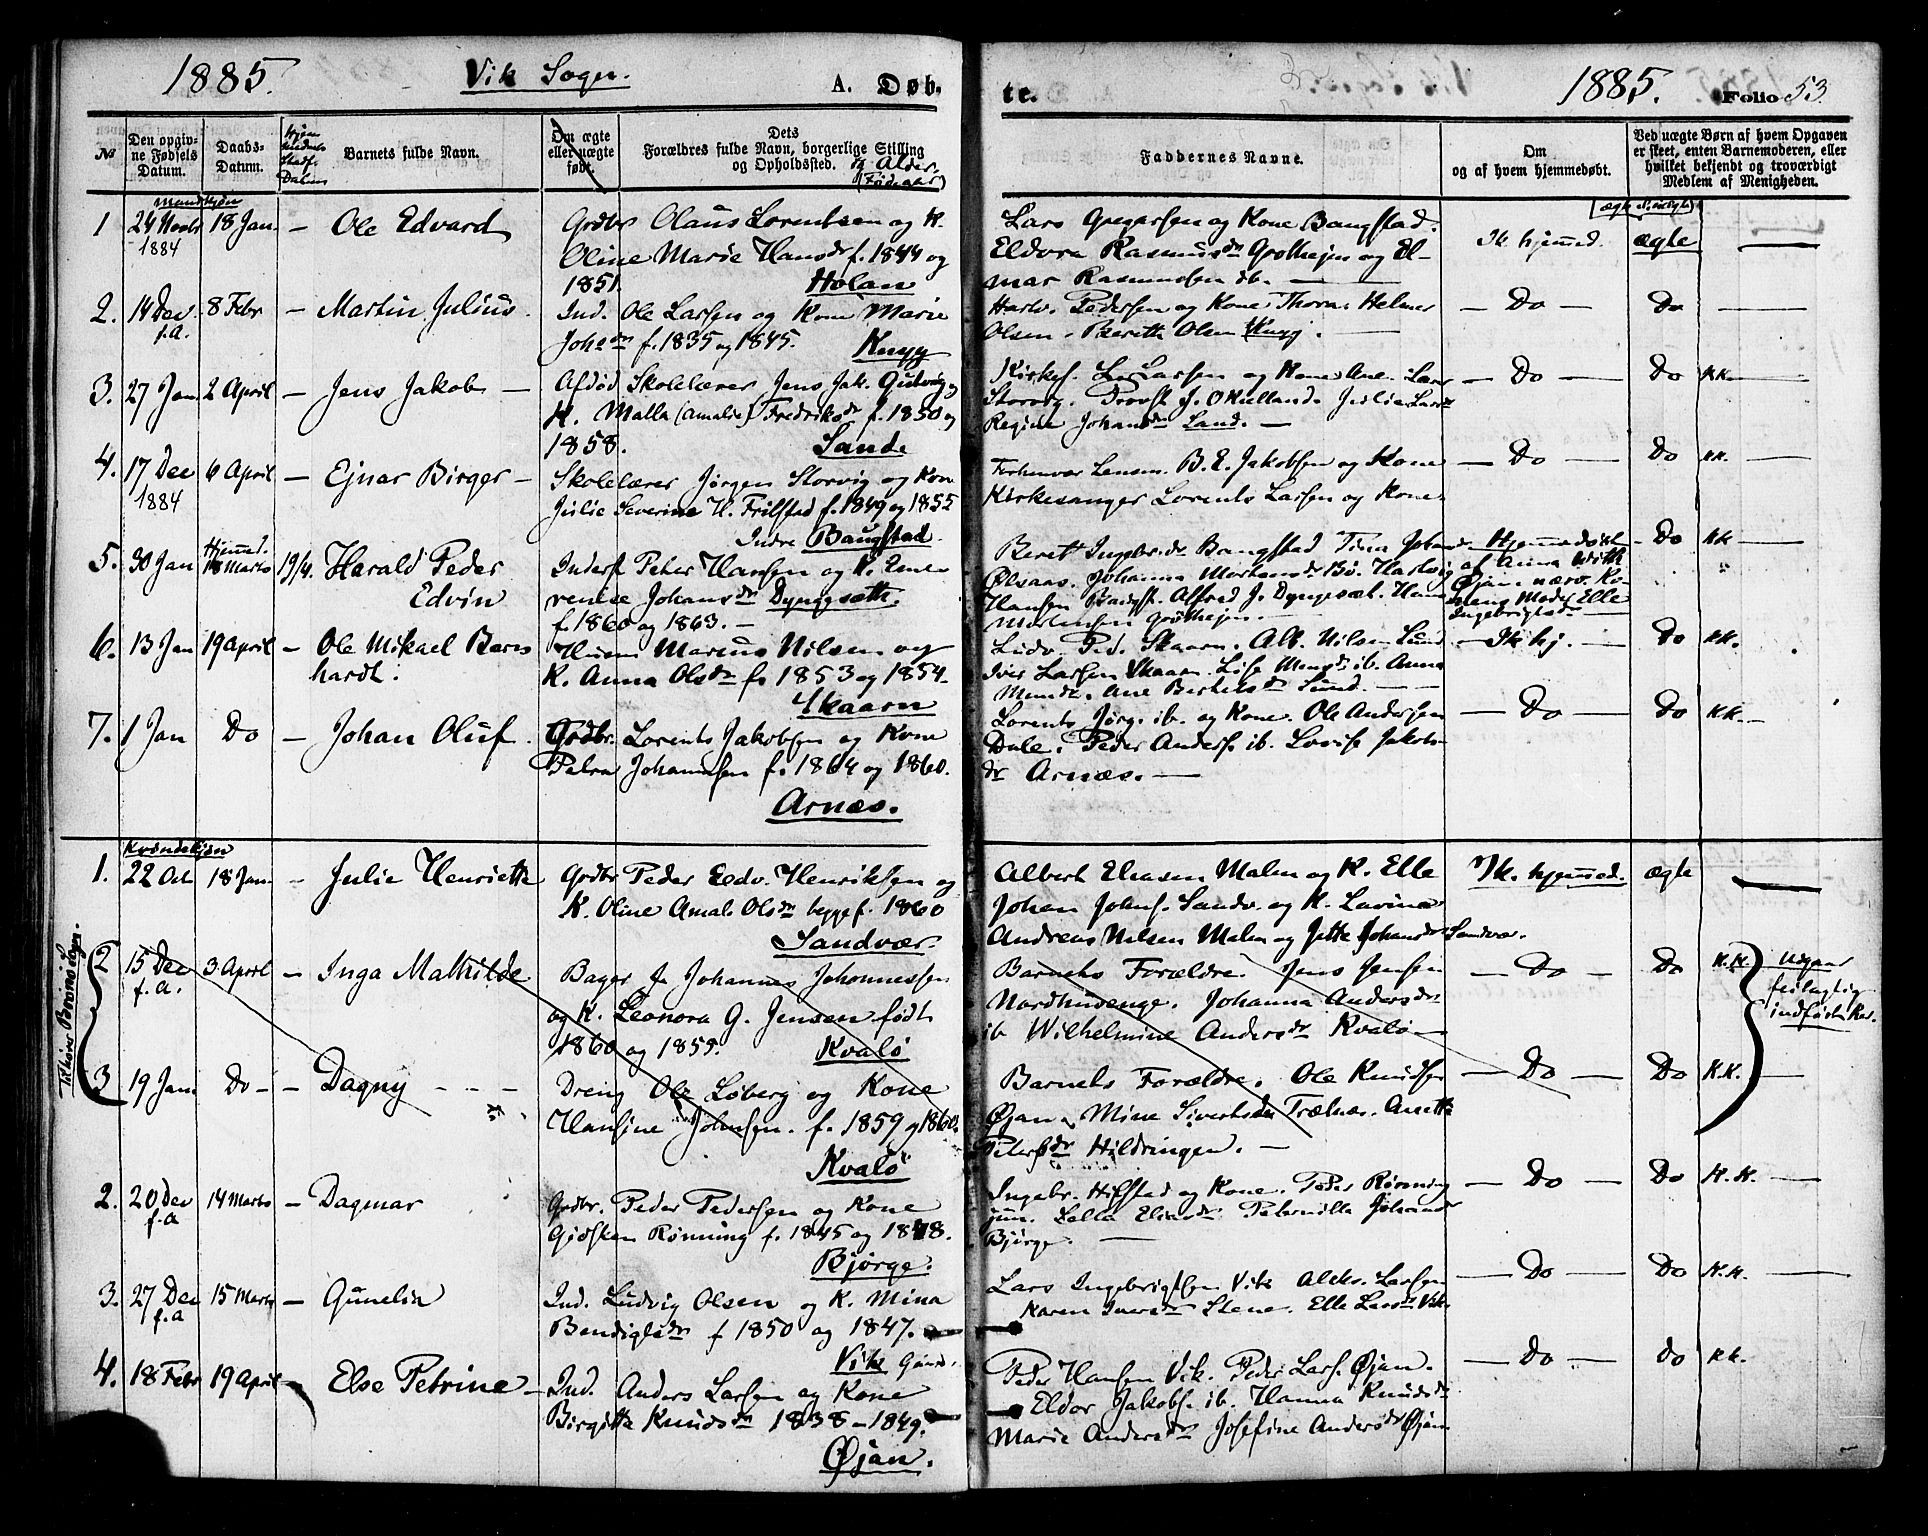 1885. Vik Sogn. A. Døb-
te. 1885. Folio 53.
№ Den opgivne Fødsels Datum. Daabs-Datum. Hjem Datum Barnets fulde Navn. Om ægte eller uægte født. Dets Forældres fulde Navn, borgerlige Stilling og Opholdssted. & Alder. (Fødeaar)
Faddernes Navne. Om og af hvem hjemmedøbt. Ved uægte Børn af hvem Opgaven er skeet, enten Barnemoderen, eller hvilket bekjendt og troværdigt Medlem af Menigheden.
Mandkjøn
1 24 Novbr 18 Jan. – Ole Edvard Grdbr Olaus Lorentsen og K.
1884 Oline Marie Hansdr f. 1844 og
1851. Holan
Lars Gregersen og Kone Bangstad.
Eldora Rasmusdr Grøthejm og El-
mar Rasmussen ib. –
Ik. hjemmed. ægte
2. 14 Dec 8 Febr – Martin Julius. Ind. Ole Larsen og Kone Marie
f.a. Johsdr f. 1835 og 1845. Knyg
Hartv. Pedersen og Kone. Thom. Helmer
Olsen. Berette Olsen Knyg.
– Do – Do
3. 27 Jan 2 April – Jens Jakob – Afdød Skolelærer Jens Jak. Gutvig og
K. Malla (Amalie) Fredriksdr f. 1850 og
1858. Sand.
Kirkes. L. Larsen og Kone Ane. Lars
Storvig. Provst J. O Kulland. Julie Larsdr
Regine Johansdr Sand. –
– Do – Do KK.
4. 17 Dec 6 April – Ejnar Birger – Skolelærer Jørgen Storvig og Kone
1884 Julie Severine H. Frilstad f. 1849 og 1855
Indre Bangstad
Forhenvær Lensm. B. E. Jakobsen og Kone
Kirkesanger Lorents Larsen og Kone.
– Do – Do KK.
5. 30 Jan Hjemmed. 18 Marts 19/4. Harald Peder Inderst Peter Hansen og K. Emer
Edvin rentse Johansdr Dyngesæth.
f. 1860 og 1863. –
Beret Ingebr.dr Bangstad Tina Johansdr
Ølsaas. Johanna Mortensdr Bø. Hartvig
Hansen Bangst. Alfred J. Dyngesæt. Hans
Mortensen Grøthejm. –
Hjemmedøbt
af Anna
Øjan nærv. Ko-
nens Moder Elle
Ingebrigtsdr
Do KK –
6. 13 Jan 19 April – Ole Mikael Bern Husm Marius Nilsen og
hardt. K. Anna Olsdr f. 1853 og 1854
Skaarn
Ludv. Ped. Skaarn. Alb. Nilsen Lund
Iver Larsen Skaarn. Lise Monsdr ib. Anna
Ane Bertelsdr Lund. –
– Ik hj. – Do KK.
7. 1 Jan Do – Johan Oluf. Grdbr. Lorents Jakobsen og Kone
Petra Johannsen f. 1864 og 1860.
Arnæs.
Lorents Jørg. ib. og Kone. Ole Andersen
Dale. Peder Anders. ib. Lovise Jakobs-
dr Arnæs. –
– Do – Do KK. –
Kvindekjøn
1. 22 Oct 18 Jan – Julie Henriette Grdbr Peder Eedv. Henriksen og
K. Oline Amal. Olsdr begge f. 1860
Sandvær.
Albert Eliasen Malm og K. Elle
Johan Johns. Sandv. og K. Lavina
Andreas Nilsen Malm og Jette Johansdr Sandvær.
Ik. hjemmed. ægte
Tilhører Bovins Sogn.
2 15 Dec 3 April – Inga Mathilde Bager J. Johannes Johannessen
f.a. og K. Leonora G. Jensen født
1860 og 1859. Kvalø
Barnets Forældre. Jens Jensen
Nordhusenge. Johanna Andersdr
ib Wilhelmine Andersdr Kvalø –
– Do – Do K.K. Udgaar
feilagtig
indført her.
3 19 Jan Do – – Dagny – – – Dreng Ole Løberg og Kone
Hansine Johnsen. f. 1859 og 1860.
Kvalø
Barnets Forældre. Ole Knudsen
Øjan. Mine Sivertsdr Trælnes. Anette
Petersdr Hildringen. –
– Do – Do K.K. –
2. 20 Dec 14 Marts – Dagmar Grdbr. Peder Pedersen og Kone
f.a Gjøsken Rønning f. 1845 og 1848.
Bjørge.
Ingebr. Hifstad og Kone. Peder Rønning
jun. Lella Eliasdr Peternilla Johansdr
Bjørge. –
– Do – Do K.K. –
3. 27 Dec 15 Marts – Gunelia Ind. Ludvig Olsen og K. Mina
f.a Bendigtsdr f 1850 og 1847.
Vik
Lars Ingebrigtsen Vik Aleks. Larsen
Karen Iversdr Stene. Elle Larsdr Vik.
– Do – Do K.K. –
4. 18 Febr 19 April – Else Petrine – Ind. Anders Larsen og Kone
Birgitte Knudsdr 1838 – 1849.
Øjan.
Peder Hansen Vik. Peder Lars. Øjan.
Eldor Jakobs. ib. Hanna Knudsdr
Marie Andersdr Josefine Andersdr Øjan
– Do – Do KK.